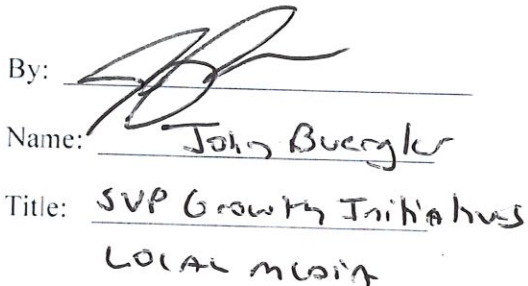 By:
Name: John Buergler
Title: SVP Growth Initiatives
LOCAL MEDIA